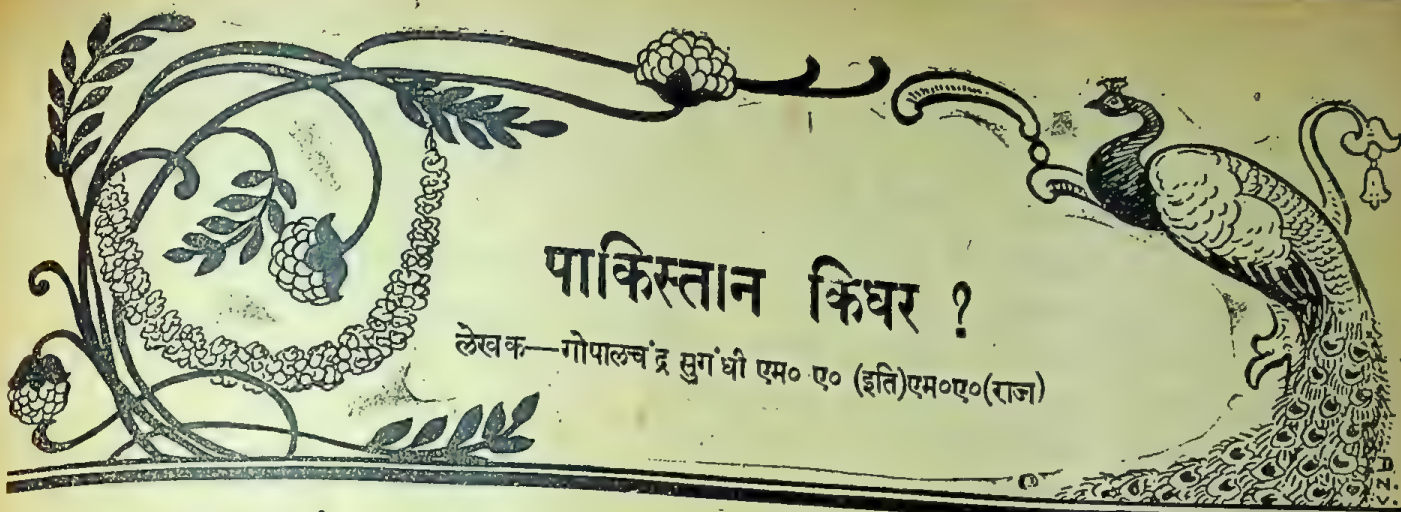 पाकिस्तान किधर ?
लेखक—गोपालचंद्र सुगंधी एम० ए० (इति)एम०ए०(राज)